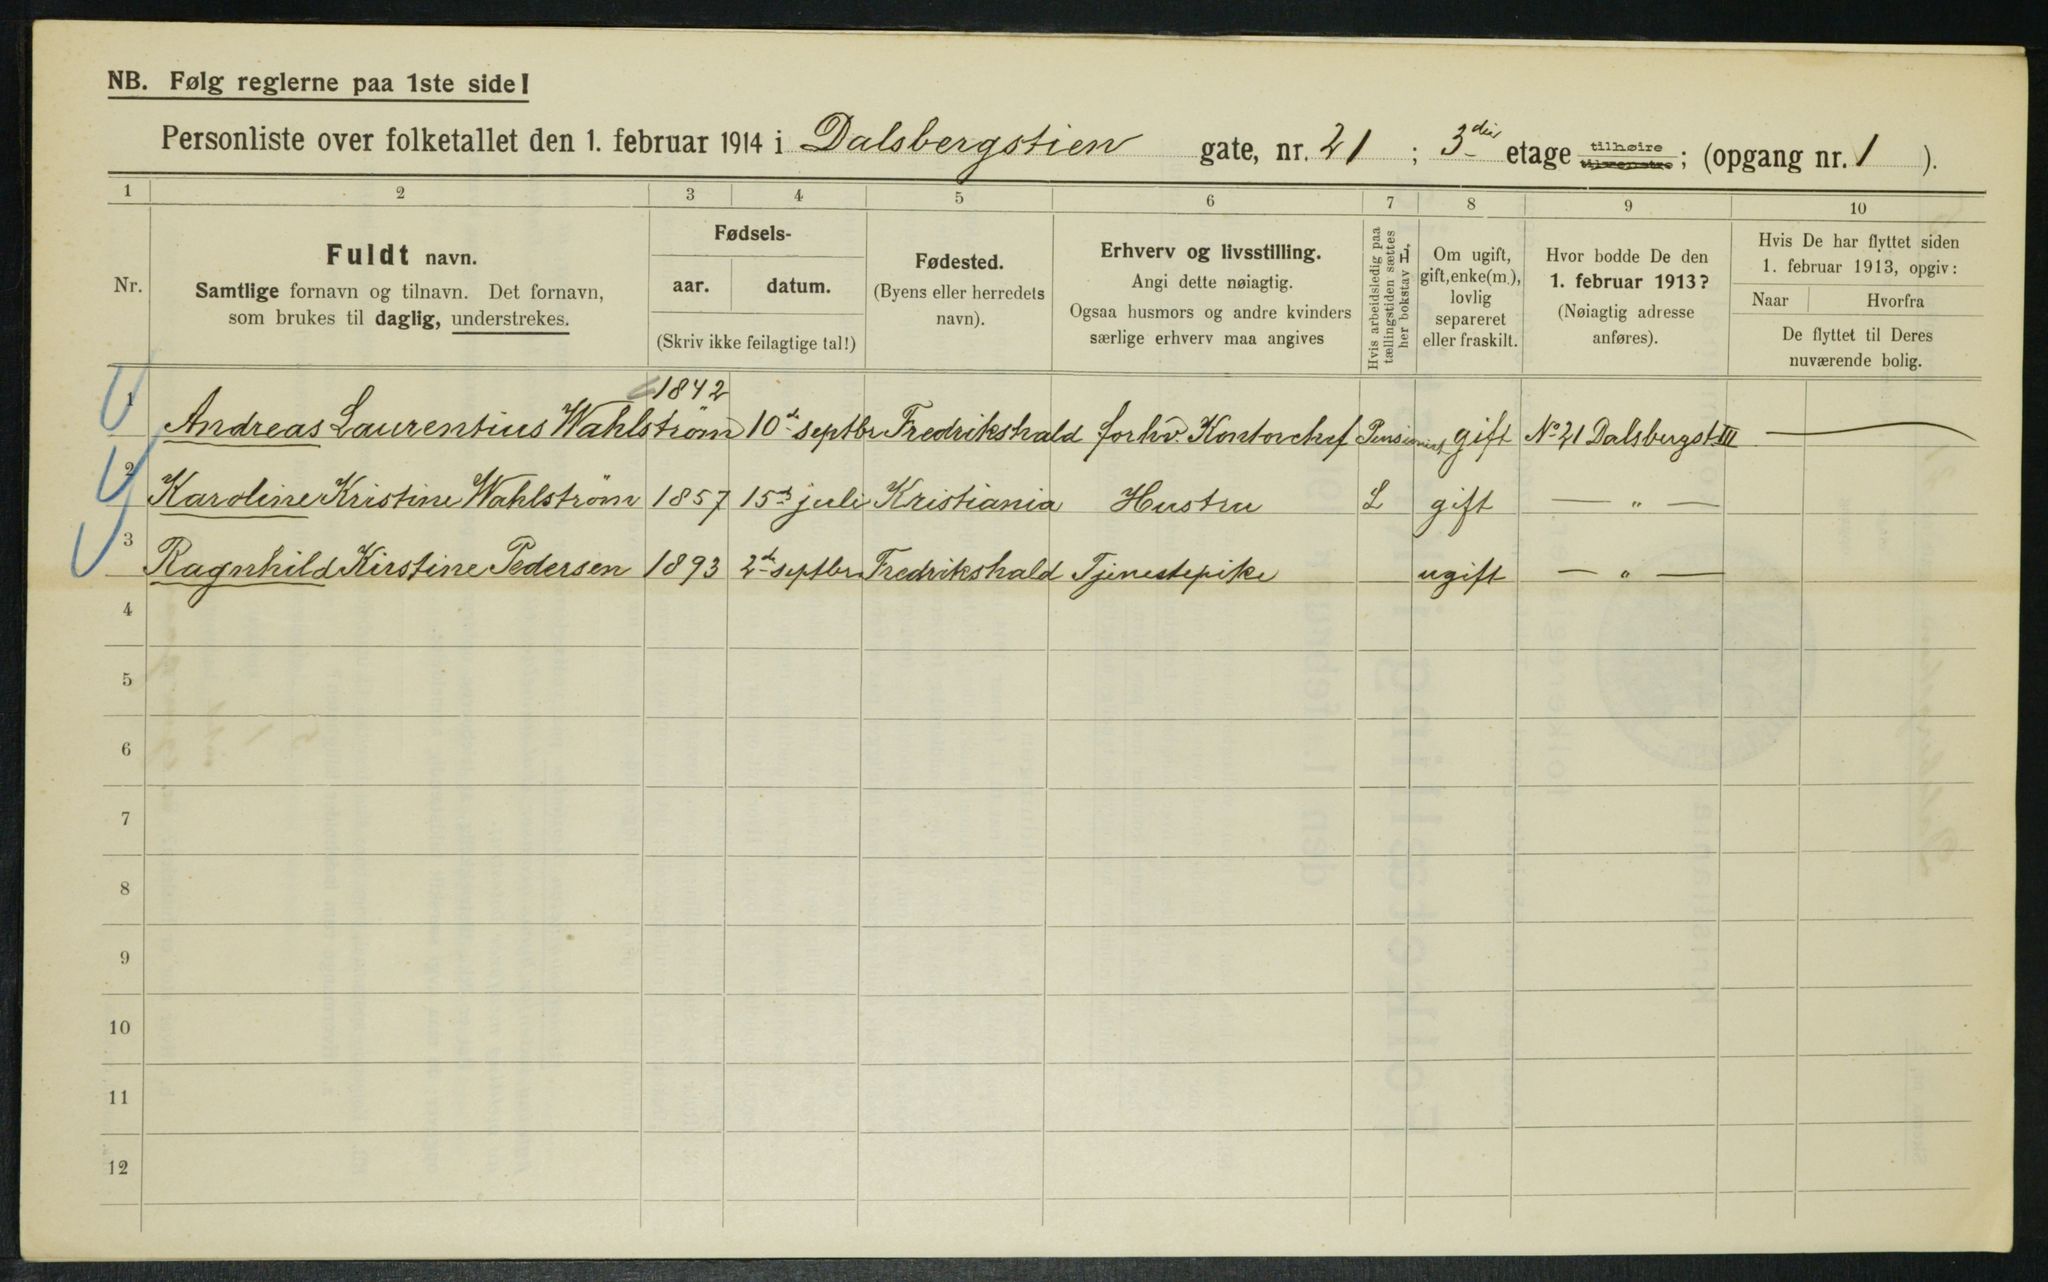 NB. Følg reglerne paa 1ste side!
Personliste over folketallet den 1. februar 1914 i Dalsbergstien gate, nr. 21 ; 3die etage tilhøire tilvenstre ; (opgang nr. 1 ).
1 2 3 4 5 6 7 8 9 10
Nr.
Fuldt navn.
Samtlige fornavn og tilnavn. Det fornavn,
som brukes til daglig, understrekes.
Fødsels-
aar. datum.
(Skriv ikke feilagtige tal!)
Fødested.
(Byens eller herredets
navn).
Erhverv og livsstilling.
Angi dette nøiagtig.
Ogsaa husmors og andre kvinders
særlige erhverv maa angives
Hvis arbeidsledig paa
tællingstiden sættes
her bokstav L,
Om ugift,
gift, enke(m.),
lovlig
separeret
eller fraskilt.
Hvor bodde De den
1. februar 1913?
(Nøiagtig adresse
anføres).
Hvis De har flyttet siden
1. februar 1913, opgiv:
Naar Hvorfra
De flyttet til Deres
nuværende bolig.
1 Andreas Laurentius Wahlstrøm 1842 10de septbr Fredrikshald forhv. Kontorchef Pensionist gift No 21 Dalsbergst III —
2 Karoline Kristine Wahlstrøm 1857 15de juli Kristiania Hustru L gift — " —
3 Ragnhild Kirstine Pedersen 1893 2de septbr Fredrikshald Tjenestepike ugift — " —
4
5
6
7
8
9
10
11
12